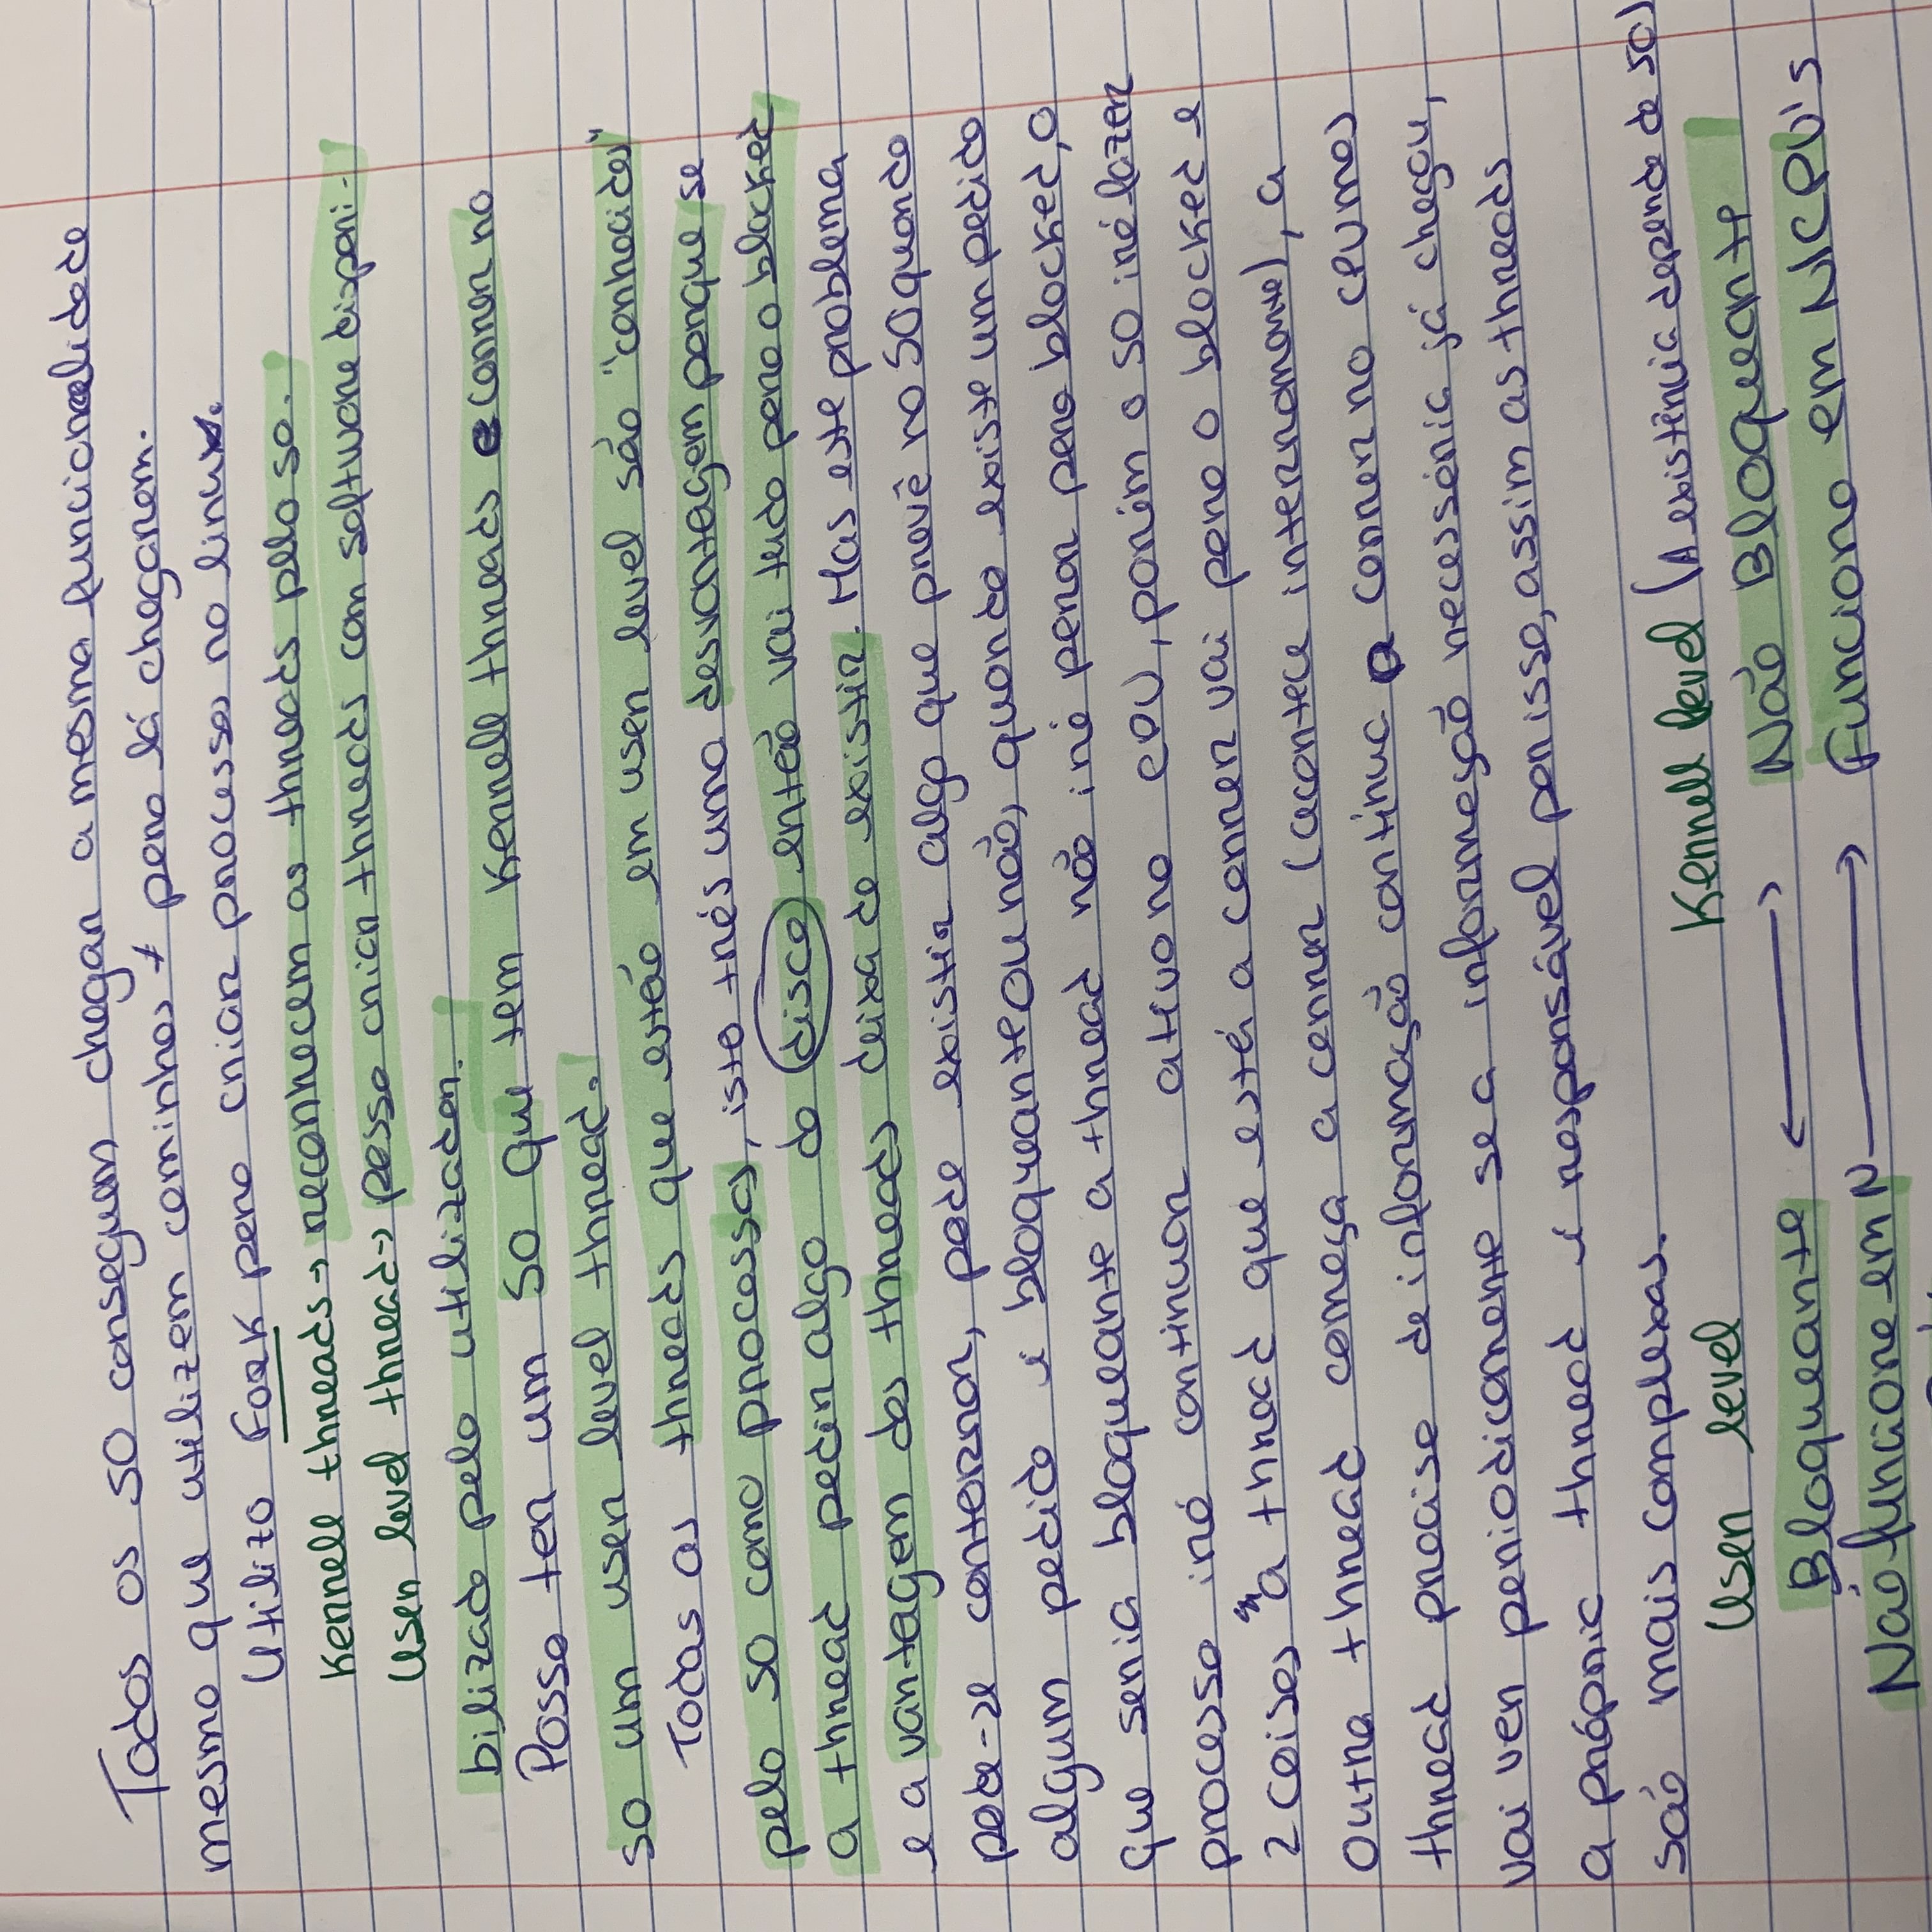 Todos os SO conseguem chegar a mesma funcionalidade
mesmo que utilizem caminhos ≠ para lá chegarem.
Utilizo Fork para criar processos no linux.
Kernell threads → reconhecem as threads pelo so.
User level thread → posso criar threads com software disponi-
bilizado pelo utilizador.
Posso ter um SO que tem Kernell threads e correr no
so um user level thread.
Todas as threads que estão em user level são "conhecidas"
pelo so como processos, isto trás uma desvantagem porque se
a thread pedir algo do disco então vai tudo para o blocked
e a vantagem das threads deixa de existir. Mas este problema
pode-se contornar, pode existir algo que prevê no SO quando
algum pedido é bloqueante ou não, quando existe um pedido
que seria bloqueante a thread não irá parar para blocked, o
processo irá continuar ativo no CPU, porém o so irá fazer
2 coisas a thread que está a correr vai para o blocked e
outra thread começa a correr (acontece internamente), a
thread precisa de informação continua a correr no CPU mas
vai ver periodicamente se a informação necessária já chegou,
a própria thread é responsável por isso, assim as threads
são mais complexas.
User level Kernell level (A existência depende do SO)
Bloqueante ↔ Não Bloqueante
Não funciona em N → Funciona em N CPU's